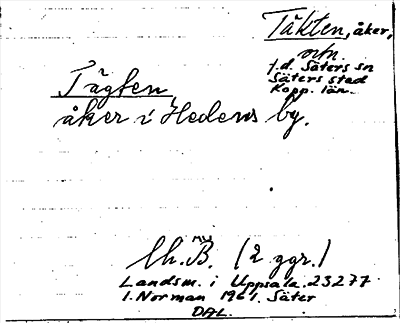 Täkten, åker,
f.d. Säters sn
Säters stad
Kopp. län.
Tägten,
åker i Hedens by.
Ch. B. (2 ggr.)
Landsm. i Uppsala. 23277.
I. Norman 1961. Säter
DAL.